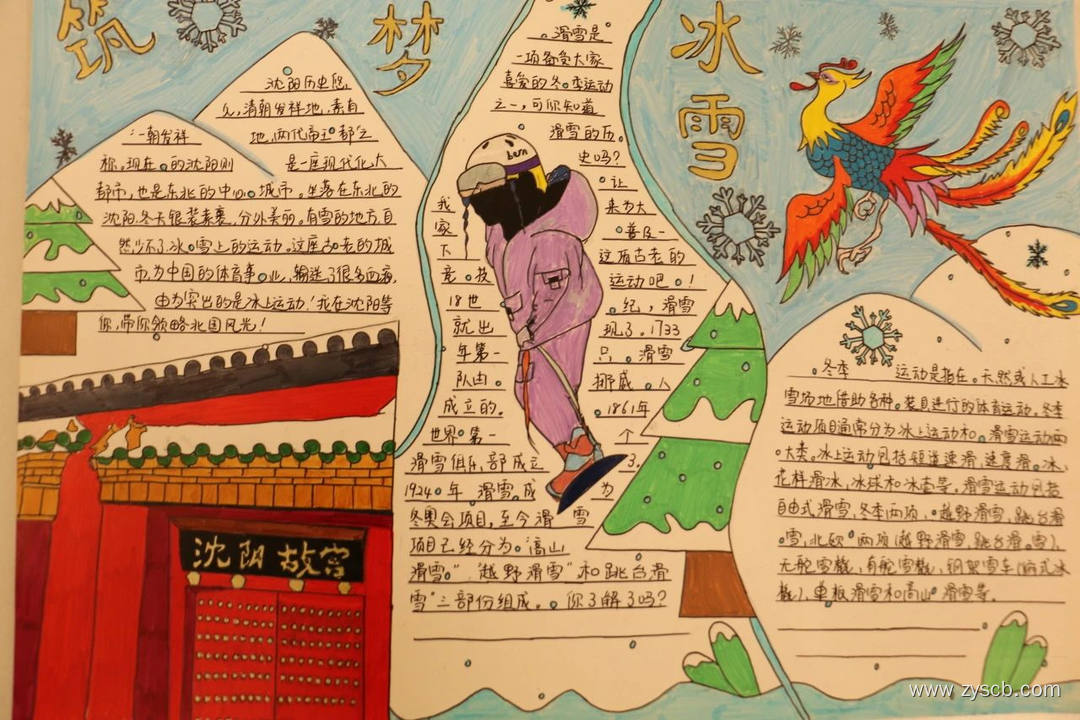 筑梦冰雪
沈阳历史悠
久,清朝发祥地,素自
"一朝发祥地,两代帝王都"之
称。现在的沈阳则是一座现代化大
都市,也是东北的中心城市。坐落在东北的
沈阳,冬天银装素裹,分外美丽。有雪的地方,自
然少不了冰雪上的运动。这座古老的城
市,为中国的体育事业,输送了很多血液,
由为突出的是冰上运动!我在沈阳等
你,带你领略北国风光!
沈阳故宫
滑雪是
一项备受大家
喜爱的冬季运动
之一,可你知道
滑雪的历
史吗?
让
我 来为大
家 普及一
下 这有古老的
竞技 运动吧!
18世 纪,滑雪
就出 现了。1733
年第一 只滑雪
队由 挪威人
成立的。 1861年
世界第一 个
滑雪俱乐部成立了。
1924年 滑雪成为
冬奥会项目,至今滑雪
项目已经分为"高山
滑雪""越野滑雪"和跳台滑
雪"三部份组成。你了解了吗?
冬季运动是指在天然或人工冰
雪场地借助各种装具进行的体育运动。冬季
运动项目通常分为冰上运动和滑雪运动两
大类。冰上运动包括短道速滑,速度滑冰,
花样滑冰,冰球和冰壶等。滑雪运动包括
自由式滑雪,冬季两项,越野滑雪,跳台滑
雪,北欧两项(越野滑雪,跳台滑雪),
无舵雪橇,有舵雪橇,钢架雪车(俯式冰
橇),单板滑雪和高山滑雪等。
bern
www.zyscb.com